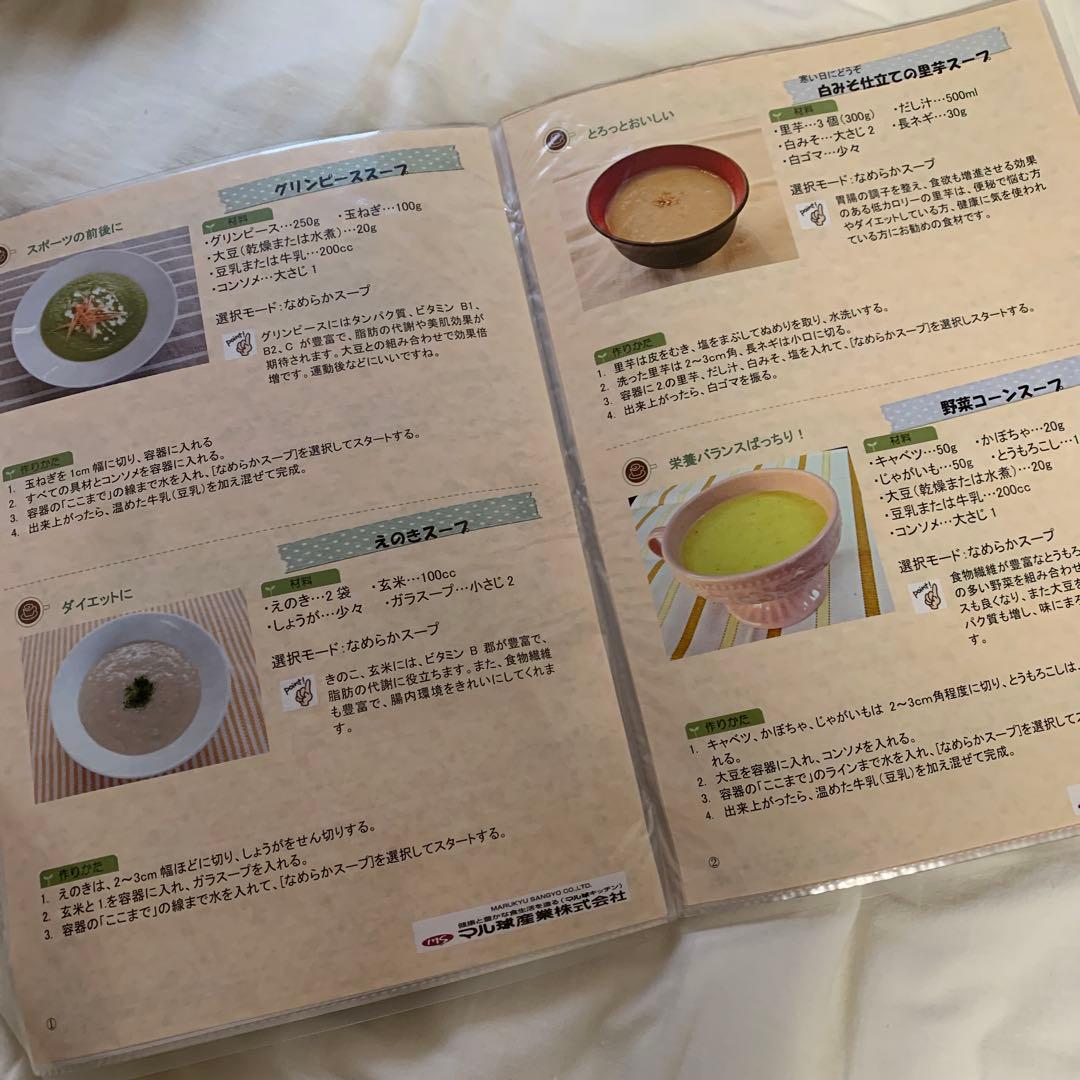 グリンピーススープ
スポーツの前後に
材料
・グリンピース…250g ・玉ねぎ…100g
・大豆(乾燥または水煮)…20g
・豆乳または牛乳…200cc
・コンソメ…大さじ1
選択モード:なめらかスープ
point!
グリンピースにはタンパク質、ビタミン B1、
B2、C が豊富で、脂肪の代謝や美肌効果が
期待されます。大豆との組み合わせで効果倍
増です。運動後などにいいですね。
作りかた
1. 玉ねぎを1cm幅に切り、容器に入れる
2. すべての具材とコンソメを容器に入れる。
3. 容器の「ここまで」の線まで水を入れ、[なめらかスープ]を選択してスタートする。
4. 出来上がったら、温めた牛乳(豆乳)を加え混ぜて完成。
えのきスープ
ダイエットに
材料
・えのき…2 袋 ・玄米…100cc
・しょうが…少々 ・ガラスープ…小さじ2
選択モード:なめらかスープ
point!
きのこ、玄米には、ビタミン B 郡が豊富で、
脂肪の代謝に役立ちます。また、食物繊維
も豊富で、腸内環境をきれいにしてくれま
す。
作りかた
1. えのきは、2～3cm 幅ほどに切り、しょうがをせん切りする。
2. 玄米と1.を容器に入れ、ガラスープを入れる。
3. 容器の「ここまで」の線まで水を入れて、[なめらかスープ]を選択してスタートする。
MARUKYU SANGYO CO.,LTD.
健康と豊かな食生活を造る(マル球キッチン)
MS マル球産業株式会社
①
寒い日にどうぞ
白みそ仕立ての里芋スープ
とろっとおいしい
材料
・里芋…3 個(300g) ・だし汁…500ml
・白みそ…大さじ2 ・長ネギ…30g
・白ゴマ…少々
選択モード:なめらかスープ
point!
胃腸の調子を整え、食欲も増進させる効果
のある低カロリーの里芋は、便秘で悩む方
やダイエットしている方、健康に気を使われ
ている方にお勧めの食材です。
作りかた
1. 里芋は皮をむき、塩をまぶしてぬめりを取り、水洗いする。
2. 洗った里芋は2～3cm角、長ネギは小口に切る。
3. 容器に2.の里芋、だし汁、白みそ、塩を入れて、[なめらかスープ]を選択しスタートする。
4. 出来上がったら、白ゴマを振る。
野菜コーンスープ
栄養バランスばっちり!
材料
・キャベツ…50g ・かぼちゃ…20g
・じゃがいも…50g ・とうもろこし…1
・大豆(乾燥または水煮)…20g
・豆乳または牛乳…200cc
・コンソメ…大さじ1
選択モード:なめらかスープ
point!
食物繊維が豊富なとうもろ
の多い野菜を組み合わせ
スも良くなり、また大豆を
パク質も増し、味にまろ
す。
作りかた
1. キャベツ、かぼちゃ、じゃがいもは 2～3cm角程度に切り、とうもろこしは、
れる。
2. 大豆を容器に入れ、コンソメを入れる。
3. 容器の「ここまで」のラインまで水を入れ、[なめらかスープ]を選択してス
4. 出来上がったら、温めた牛乳(豆乳)を加え混ぜて完成。
②